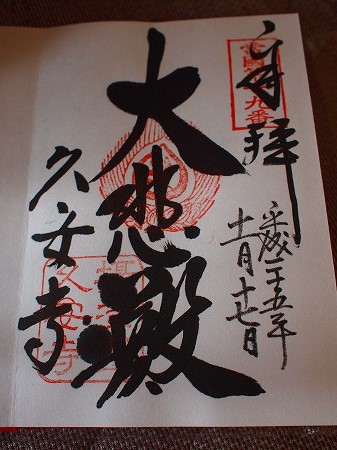 奉拝
平成二十五年
十一月十七日
大悲殿
久安寺
久安寺